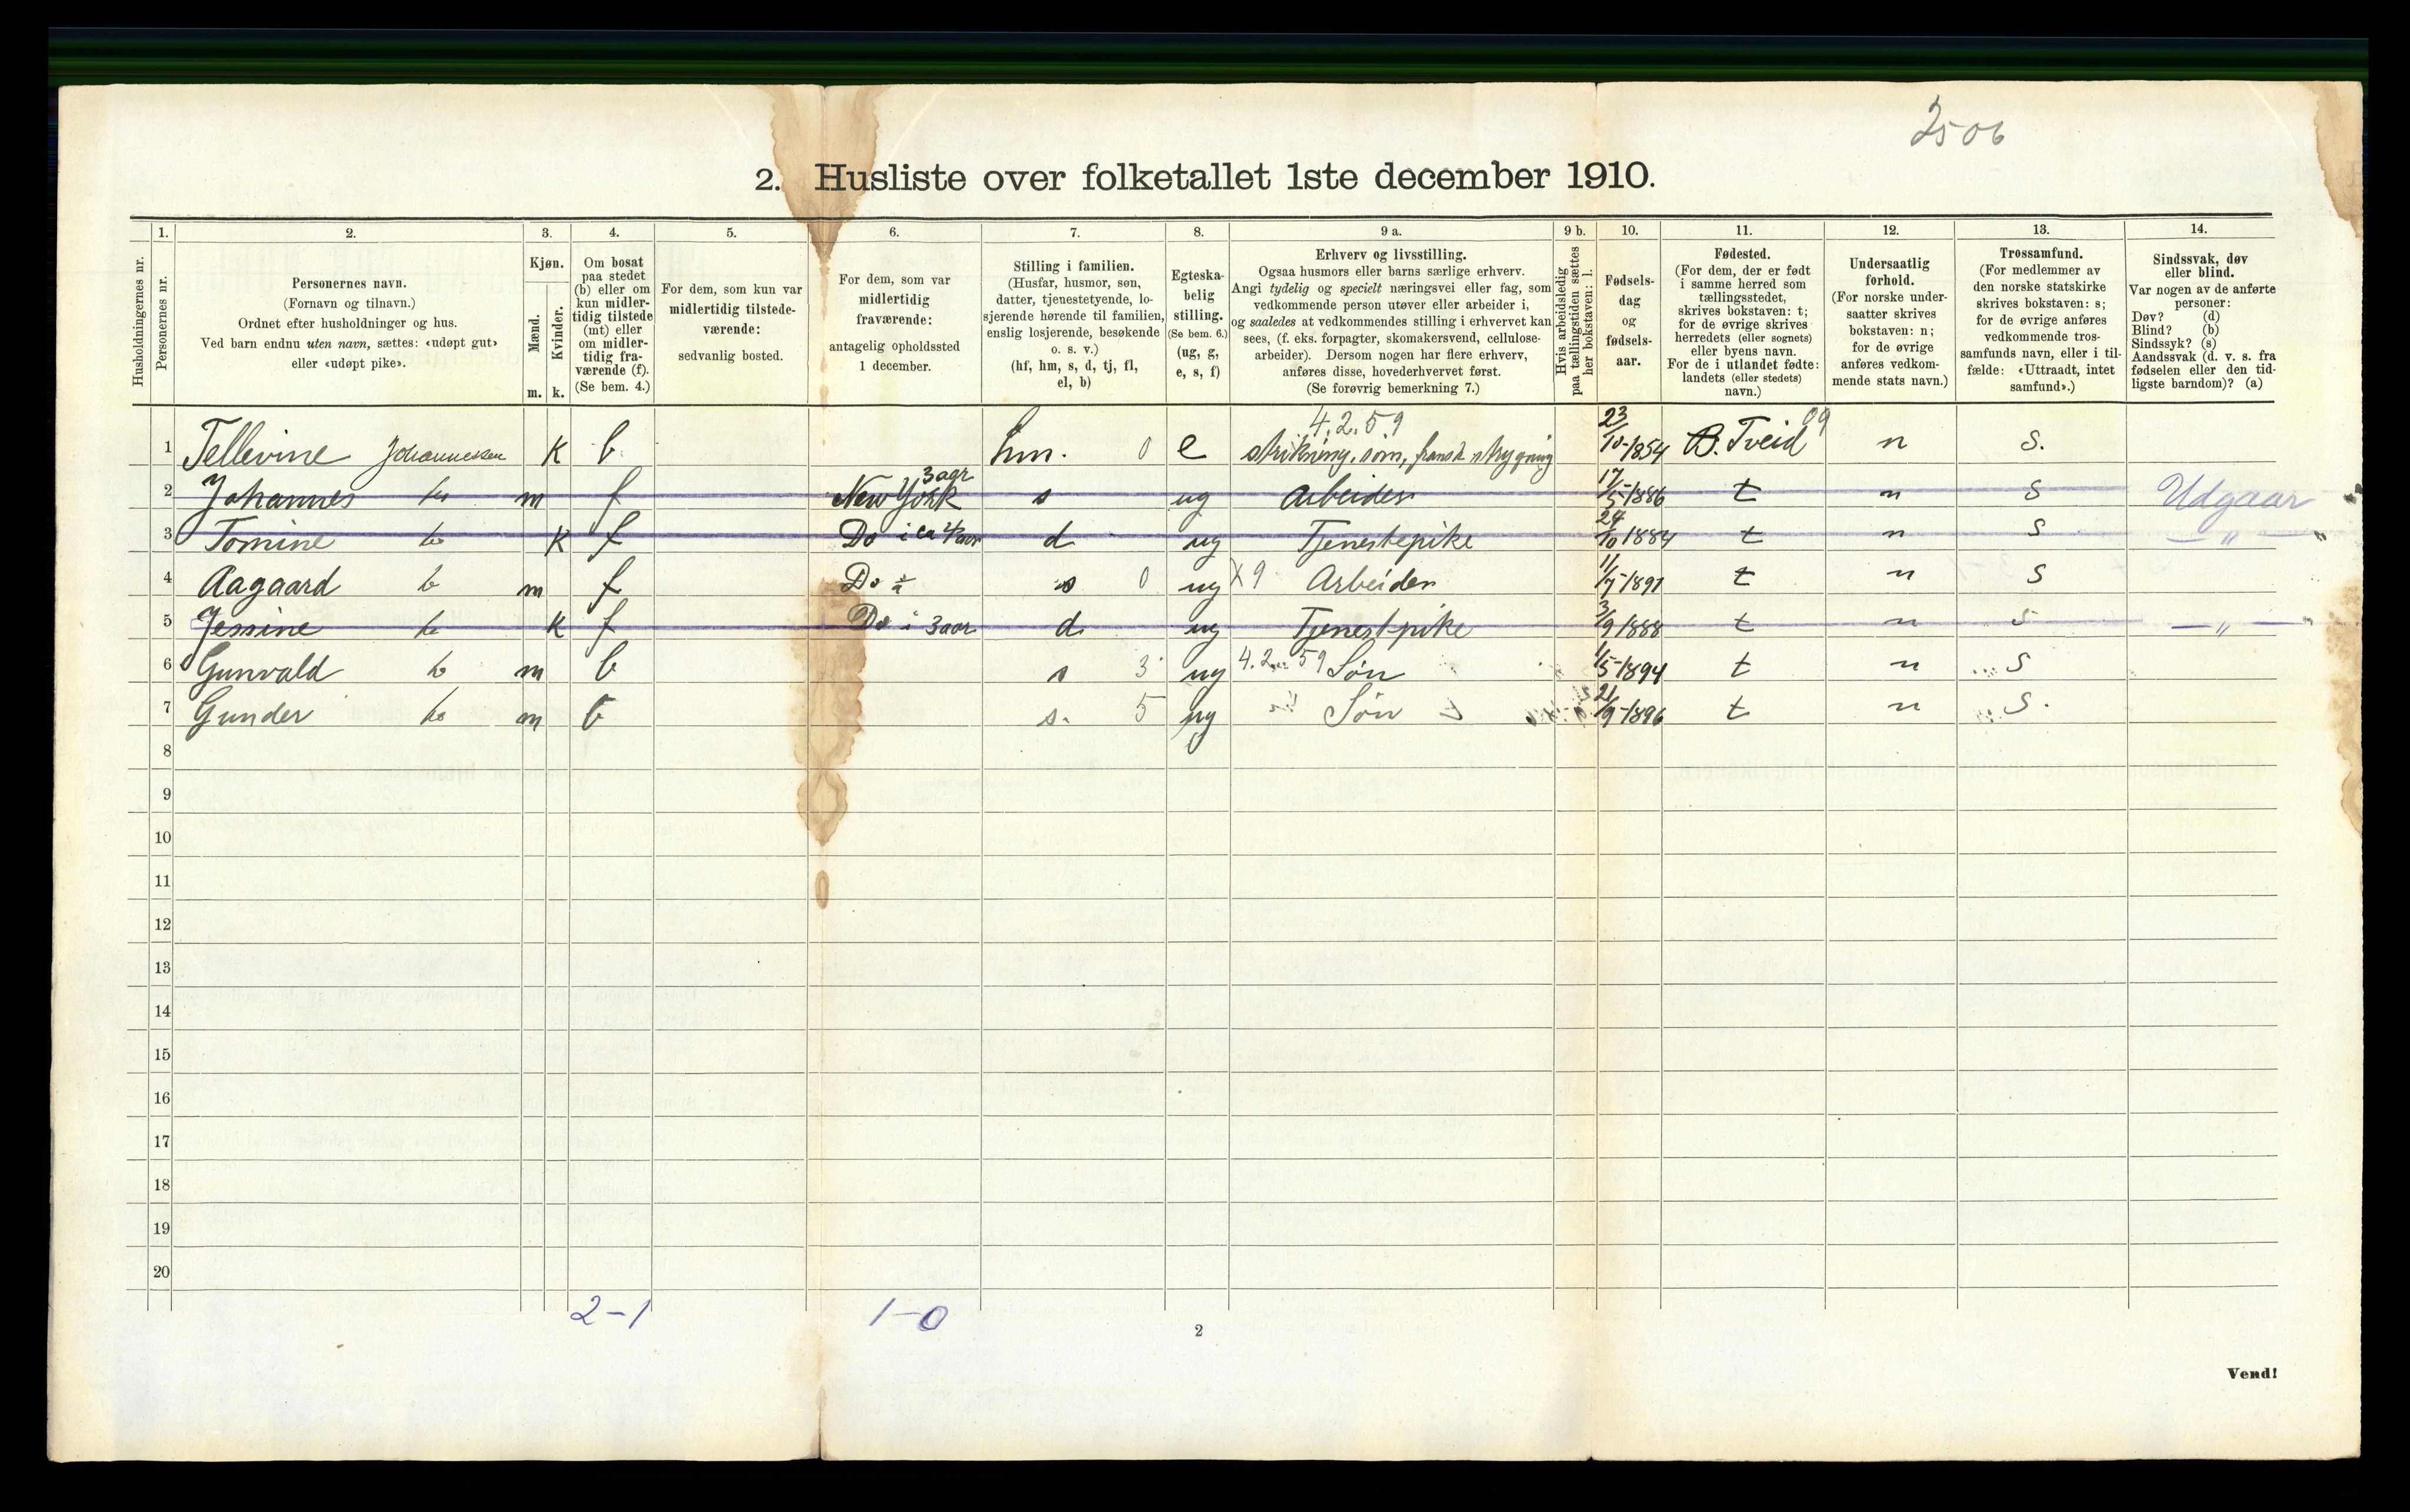 2506
2. Husliste over folketallet 1ste december 1910.
Husholdningernes nr.
1.
Personernes nr.
2.
Personernes navn.
(Fornavn og tilnavn.)
Ordnet efter husholdninger og hus.
Ved barn endnu uten navn, sættes: «udøpt gut»
eller «udøpt pike».
3.
Kjøn.
Mænd.
Kvinder.
m. k.
4.
Om bosat
paa stedet
(b) eller om
kun midler-
tidig tilstede
(mt) eller
om midler-
tidig fra-
værende (f).
(Se bem. 4.)
5.
For dem, som kun var
midlertidig tilstede-
værende:
sedvanlig bosted.
6.
For dem, som var
midlertidig
fraværende:
antagelig opholdssted
1 december.
7.
Stilling i familien.
(Husfar, husmor, søn,
datter, tjenestetyende, lo-
sjerende hørende til familien,
enslig losjerende, besøkende
o. s. v.)
(hf, hm, s, d, tj, fl,
el, b)
8.
Egteska-
belig
stilling.
(Se bem. 6.)
(ug, g,
e, s, f)
9 a.
Erhverv og livsstilling.
Ogsaa husmors eller barns særlige erhverv.
Angi tydelig og specielt næringsvei eller fag, som
vedkommende person utøver eller arbeider i,
og saaledes at vedkommendes stilling i erhvervet kan
sees, (f. eks. forpagter, skomakersvend, cellulose-
arbeider). Dersom nogen har flere erhverv,
anføres disse, hovederhvervet først.
(Se forøvrig bemerkning 7.)
9 b.
Hvis arbeidsledig
paa tællingstiden sættes
her bokstaven: l.
10.
Fødsels-
dag
og
fødsels-
aar.
11.
Fødested.
(For dem, der er født
i samme herred som
tællingsstedet,
skrives bokstaven: t;
for de øvrige skrives
herredets (eller sognets)
eller byens navn.
For de i utlandet fødte:
landets (eller stedets)
navn.)
12.
Undersaatlig
forhold.
(For norske under-
saatter skrives
bokstaven: n;
for de øvrige
anføres vedkom-
mende stats navn.)
13.
Trossamfund.
(For medlemmer av
den norske statskirke
skrives bokstaven: s;
for de øvrige anføres
vedkommende tros-
samfunds navn, eller i til-
fælde: «Uttraadt, intet
samfund».)
14.
Sindssvak, døv
eller blind.
Var nogen av de anførte
personer:
Døv? (d)
Blind? (b)
Sindssyk? (s)
Aandssvak (d. v. s. fra
fødselen eller den tid-
ligste barndom)? (a)
1 Tellevine Johannessen K b hm. 0 e 4.2.59 strikning, söm, fransk strygning 23/10-1854 B. Tveid 09 n s.
2 Johannes do m f New York 3 aar s ug Arbeider 17/5-1886 t n s Udgaar
3 Tomine do K f Do i ca 4 aar d ug Tjenestepike 24/10 1884 t n s — " —
4 Aagaard do m f Do s 0 ug X9 Arbeider 11/7-1891 t n s
5 Jessine do K f Do i 3 aar d ug Tjenestpike 3/9 1888 t n s — " —
6 Gunvald do m b s 3 ug 4.2. 59 Søn 1/5-1894 t n s
7 Gunder do m b s. 5 ug Søn 21/9-1896 t n s.
8
9
10
11
12
13
14
15
16
17
18
19
20
2-1 1-0
2
Vend!